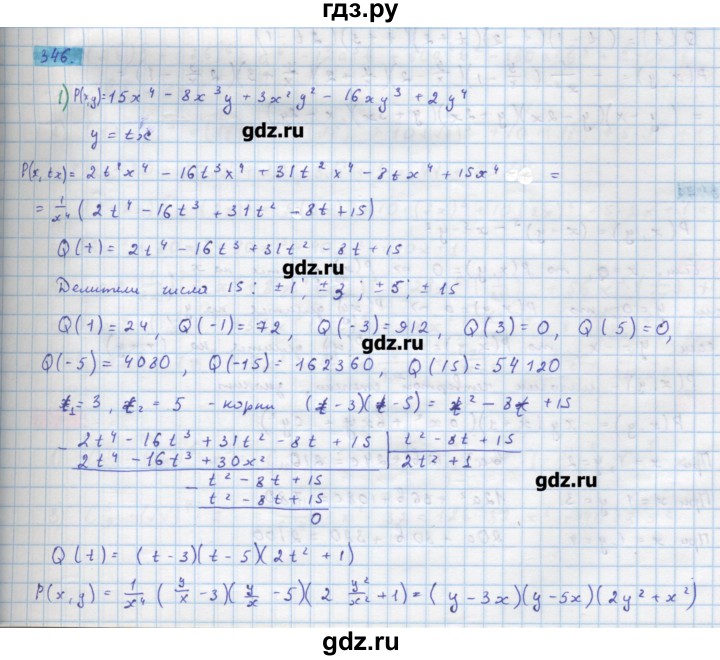 гдз.ру
346.
1) P(x,y)=15x⁴ - 8x³y + 3x²y² - 16xy³ + 2y⁴
y = tx
gdz.ru
P(x, tx) = 2t⁴x⁴ - 16t³x⁴ + 31t²x⁴ - 8tx⁴ + 15x⁴ =
= 1/x⁴ (2t⁴ - 16t³ + 31t² - 8t + 15)
Q(t) = 2t⁴ - 16t³ + 31t² - 8t + 15
gdz.ru
Делители числа 15: ±1; ±3; ±5; ±15
Q(1) = 24, Q(-1) = 72, Q(-3) = 912, Q(3) = 0, Q(5) = 0,
gdz.ru
Q(-5) = 4080, Q(-15) = 162360, Q(15) = 54120
t₁ = 3, t₂ = 5 - корни (t - 3)(t - 5) = t² - 8t + 15
- 2t⁴ - 16t³ + 31t² - 8t + 15 | t² - 8t + 15
2t⁴ - 16t³ + 30x² 2t² + 1
- t² - 8t + 15
gdz.ru
t² - 8t + 15
0
Q(t) = (t - 3)(t - 5)(2t² + 1)
P(x, y) = 1/x⁴ (y/x - 3)(y/x - 5)(2 y²/x² + 1) = (y - 3x)(y - 5x)(2y² + x²)
gdz.ru